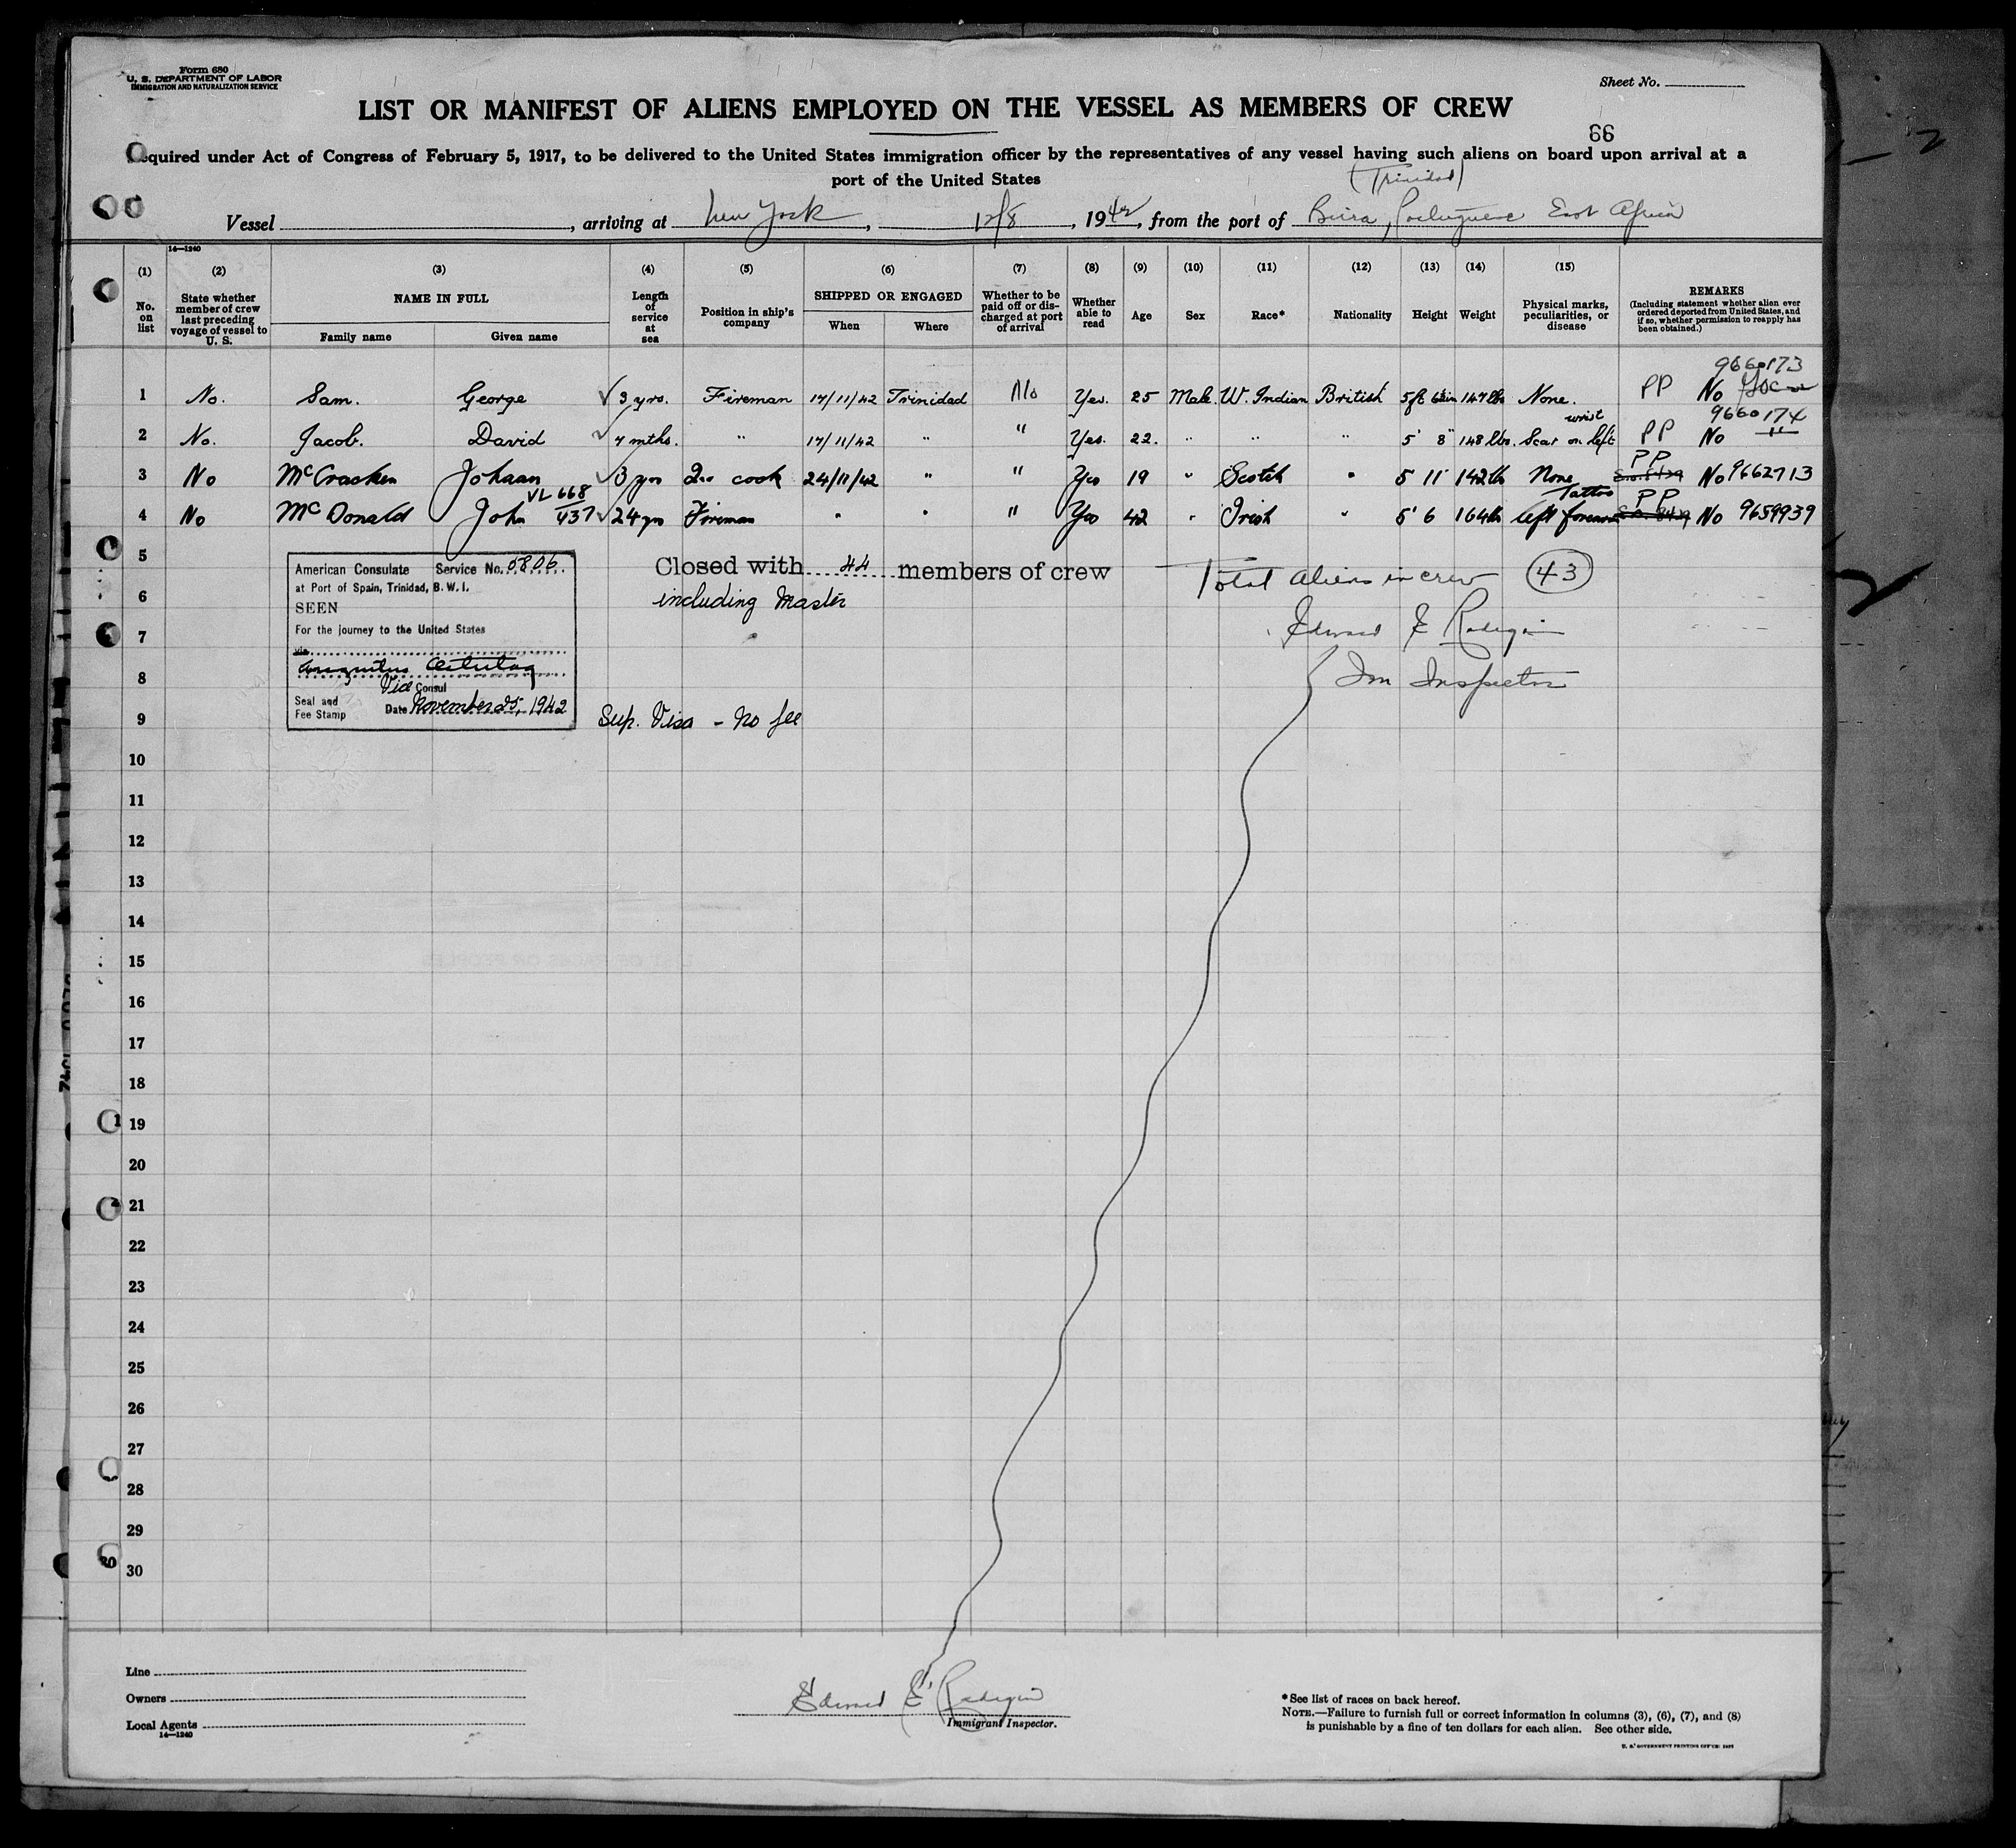 Form 680
U. S. DEPARTMENT OF LABOR
IMMIGRATION AND NATURALIZATION SERVICE
Sheet No.
LIST OR MANIFEST OF ALIENS EMPLOYED ON THE VESSEL AS MEMBERS OF CREW
66
Required under Act of Congress of February 5, 1917, to be delivered to the United States immigration officer by the representatives of any vessel having such aliens on board upon arrival at a
port of the United States
(Trinidad)
Vessel , arriving at New York , 12/8 , 1942, from the port of Beira, Portuguese East Africa
14—1240
(1) (2) (3) (4) (5) (6) (7) (8) (9) (10) (11) (12) (13) (14) (15)
No. on list
State whether member of crew last preceding voyage of vessel to U. S.
NAME IN FULL
Family name
Given name
Length of service at sea
Position in ship's company
SHIPPED OR ENGAGED
When
Where
Whether to be paid off or discharged at port of arrival
Whether able to read
Age
Sex
Race*
Nationality
Height
Weight
Physical marks, peculiarities, or disease
REMARKS
(Including statement whether alien ever ordered deported from United States, and if so, whether permission to reapply has been obtained.)
9660173
1 No. Sam. George ✓ 3 yrs. Fireman 17/11/42 Trinidad No Yes. 25 Male. W. Indian British 5ft 6½in 147 lbs None. PP No
9660174
2 No. Jacob. David ✓ 7 mths. " 17/11/42 " " Yes. 22. " " " 5' 8" 148 lbs. Scar on left wrist PP No "
3 No McCracken Johann ✓ 3 yrs 2nd cook 24/11/42 " " Yes 19 " Scotch " 5 11 142 lb None PP No 9662713
VL 668
437
4 No McDonald John ✓ 24 yrs Fireman " " " Yes 42 " Irish " 5' 6 164 lb Tattoo left forearm PP No 9659939
5
American Consulate Service No. 5806.
at Port of Spain, Trinidad, B. W. I.
SEEN
For the journey to the United States
via
Vice Consul
Seal and Fee Stamp
Date November 25, 1942
Closed with 44 members of crew
including Master
Total aliens in crew 43
Edward E Radigin
Im Inspector
Sup. Visa - No fee
6
7
8
9
10
11
12
13
14
15
16
17
18
19
20
21
22
23
24
25
26
27
28
29
30
Line
Owners
Local Agents
14—1240
Edward E. Radigin
Immigrant Inspector.
*See list of races on back hereof.
NOTE.—Failure to furnish full or correct information in columns (3), (6), (7), and (8)
is punishable by a fine of ten dollars for each alien. See other side.